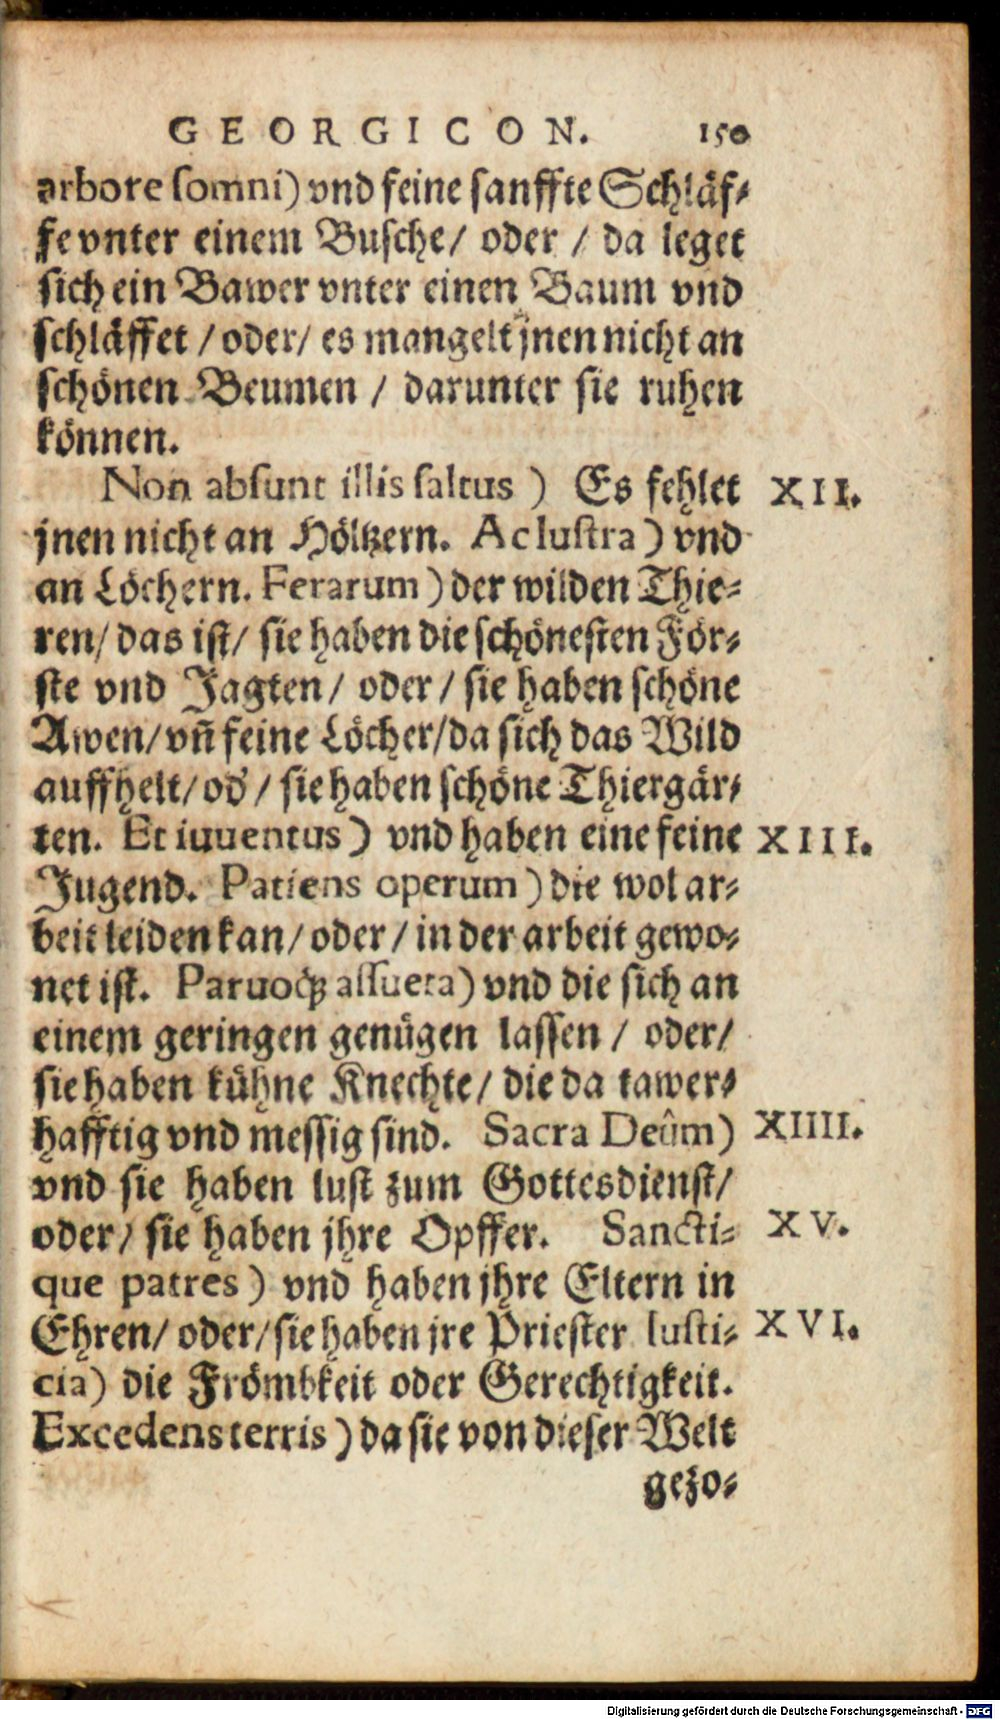 GEORGICON. 150
arbore somni) vnd feine sanffte Schläf-
fe vnter einem Busche/ oder / da leget
sich ein Bawer vnter einen Baum vnd
schläffet / oder/ es mangelt jnen nicht an
schönen Beumen / darunter sie ruhen
können.
Non absunt illis saltus ) Es fehlet XII.
jnen nicht an Höltzern. Ac lustra ) vnd
an Löchern. Ferarum ) der wilden Thie-
ren/ das ist/ sie haben die schönesten För-
ste vnd Jagten/ oder / sie haben schöne
Awen/ vñ feine Löcher/ da sich das Wild
auffhelt/ od' / sie haben schöne Thiergär-
ten. Et iuuentus ) vnd haben eine feine XIII.
Jugend. Patiens operum ) die wol ar-
beit leiden kan/ oder / in der arbeit gewo-
net ist. Paruoq́; assueta) vnd die sich an
einem geringen genügen lassen / oder/
sie haben kühne Knechte/ die da tawer-
hafftig vnd messig sind. Sacra Deûm) XIIII.
vnd sie haben lust zum Gottesdienst/
oder/ sie haben jhre Opffer. Sancti- XV.
que patres ) vnd haben jhre Eltern in
Ehren/ oder/ sie haben jre Priester Iusti- XVI.
cia) die Frömbkeit oder Gerechtigkeit.
Excedens terris ) da sie von dieser Welt
gezo-
Digitalisierung gefördert durch die Deutsche Forschungsgemeinschaft - DFG